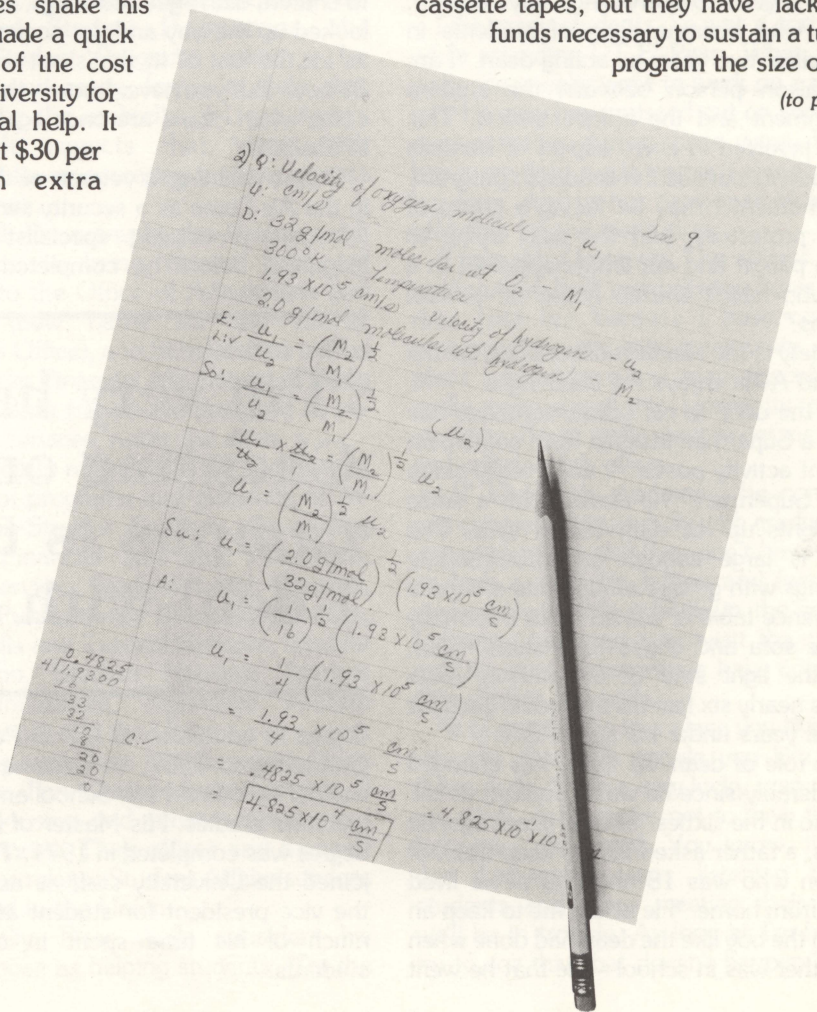 es shake his
made a quick
of the cost
iversity for
al help. It
t $30 per
n extra
cassette tapes, but they have lack
funds necessary to sustain a tu
program the size o
(to p
2) Q: Velocity of oxygen molecule - u₁
9
U: cm/s
D: 32 g/mol molecular wt. O₂ - M₁
300°K Temperature
1.93 x 10⁵ cm/s velocity of hydrogen - u₂
2.0 g/mol molecular wt. hydrogen - M₂
E: u₁/u₂ = (M₂/M₁)^½
L:✓
So: u₁/u₂ = (M₂/M₁)^½ (u₂)
u₁/u₂ x u₂/1 = (M₂/M₁)^½ u₂
u₁ = (M₂/M)^½ u₂
Su: u₁ = (2.0 g/mol / 32 g/mol)^½ (1.93 x 10⁵ cm/s)
A: u₁ = (1/16)^½ (1.93 x 10⁵ cm/s)
u₁ = 1/4 (1.93 x 10⁵ cm/s)
= 1.93/4 x 10⁵ cm/s
C:✓ = .4825 x 10⁵ cm/s = 4.825 x 10⁻¹ x 10
= 4.825 x 10⁴ cm/s
0.4825
4)1.9300
16
33
32
10
8
20
20
0